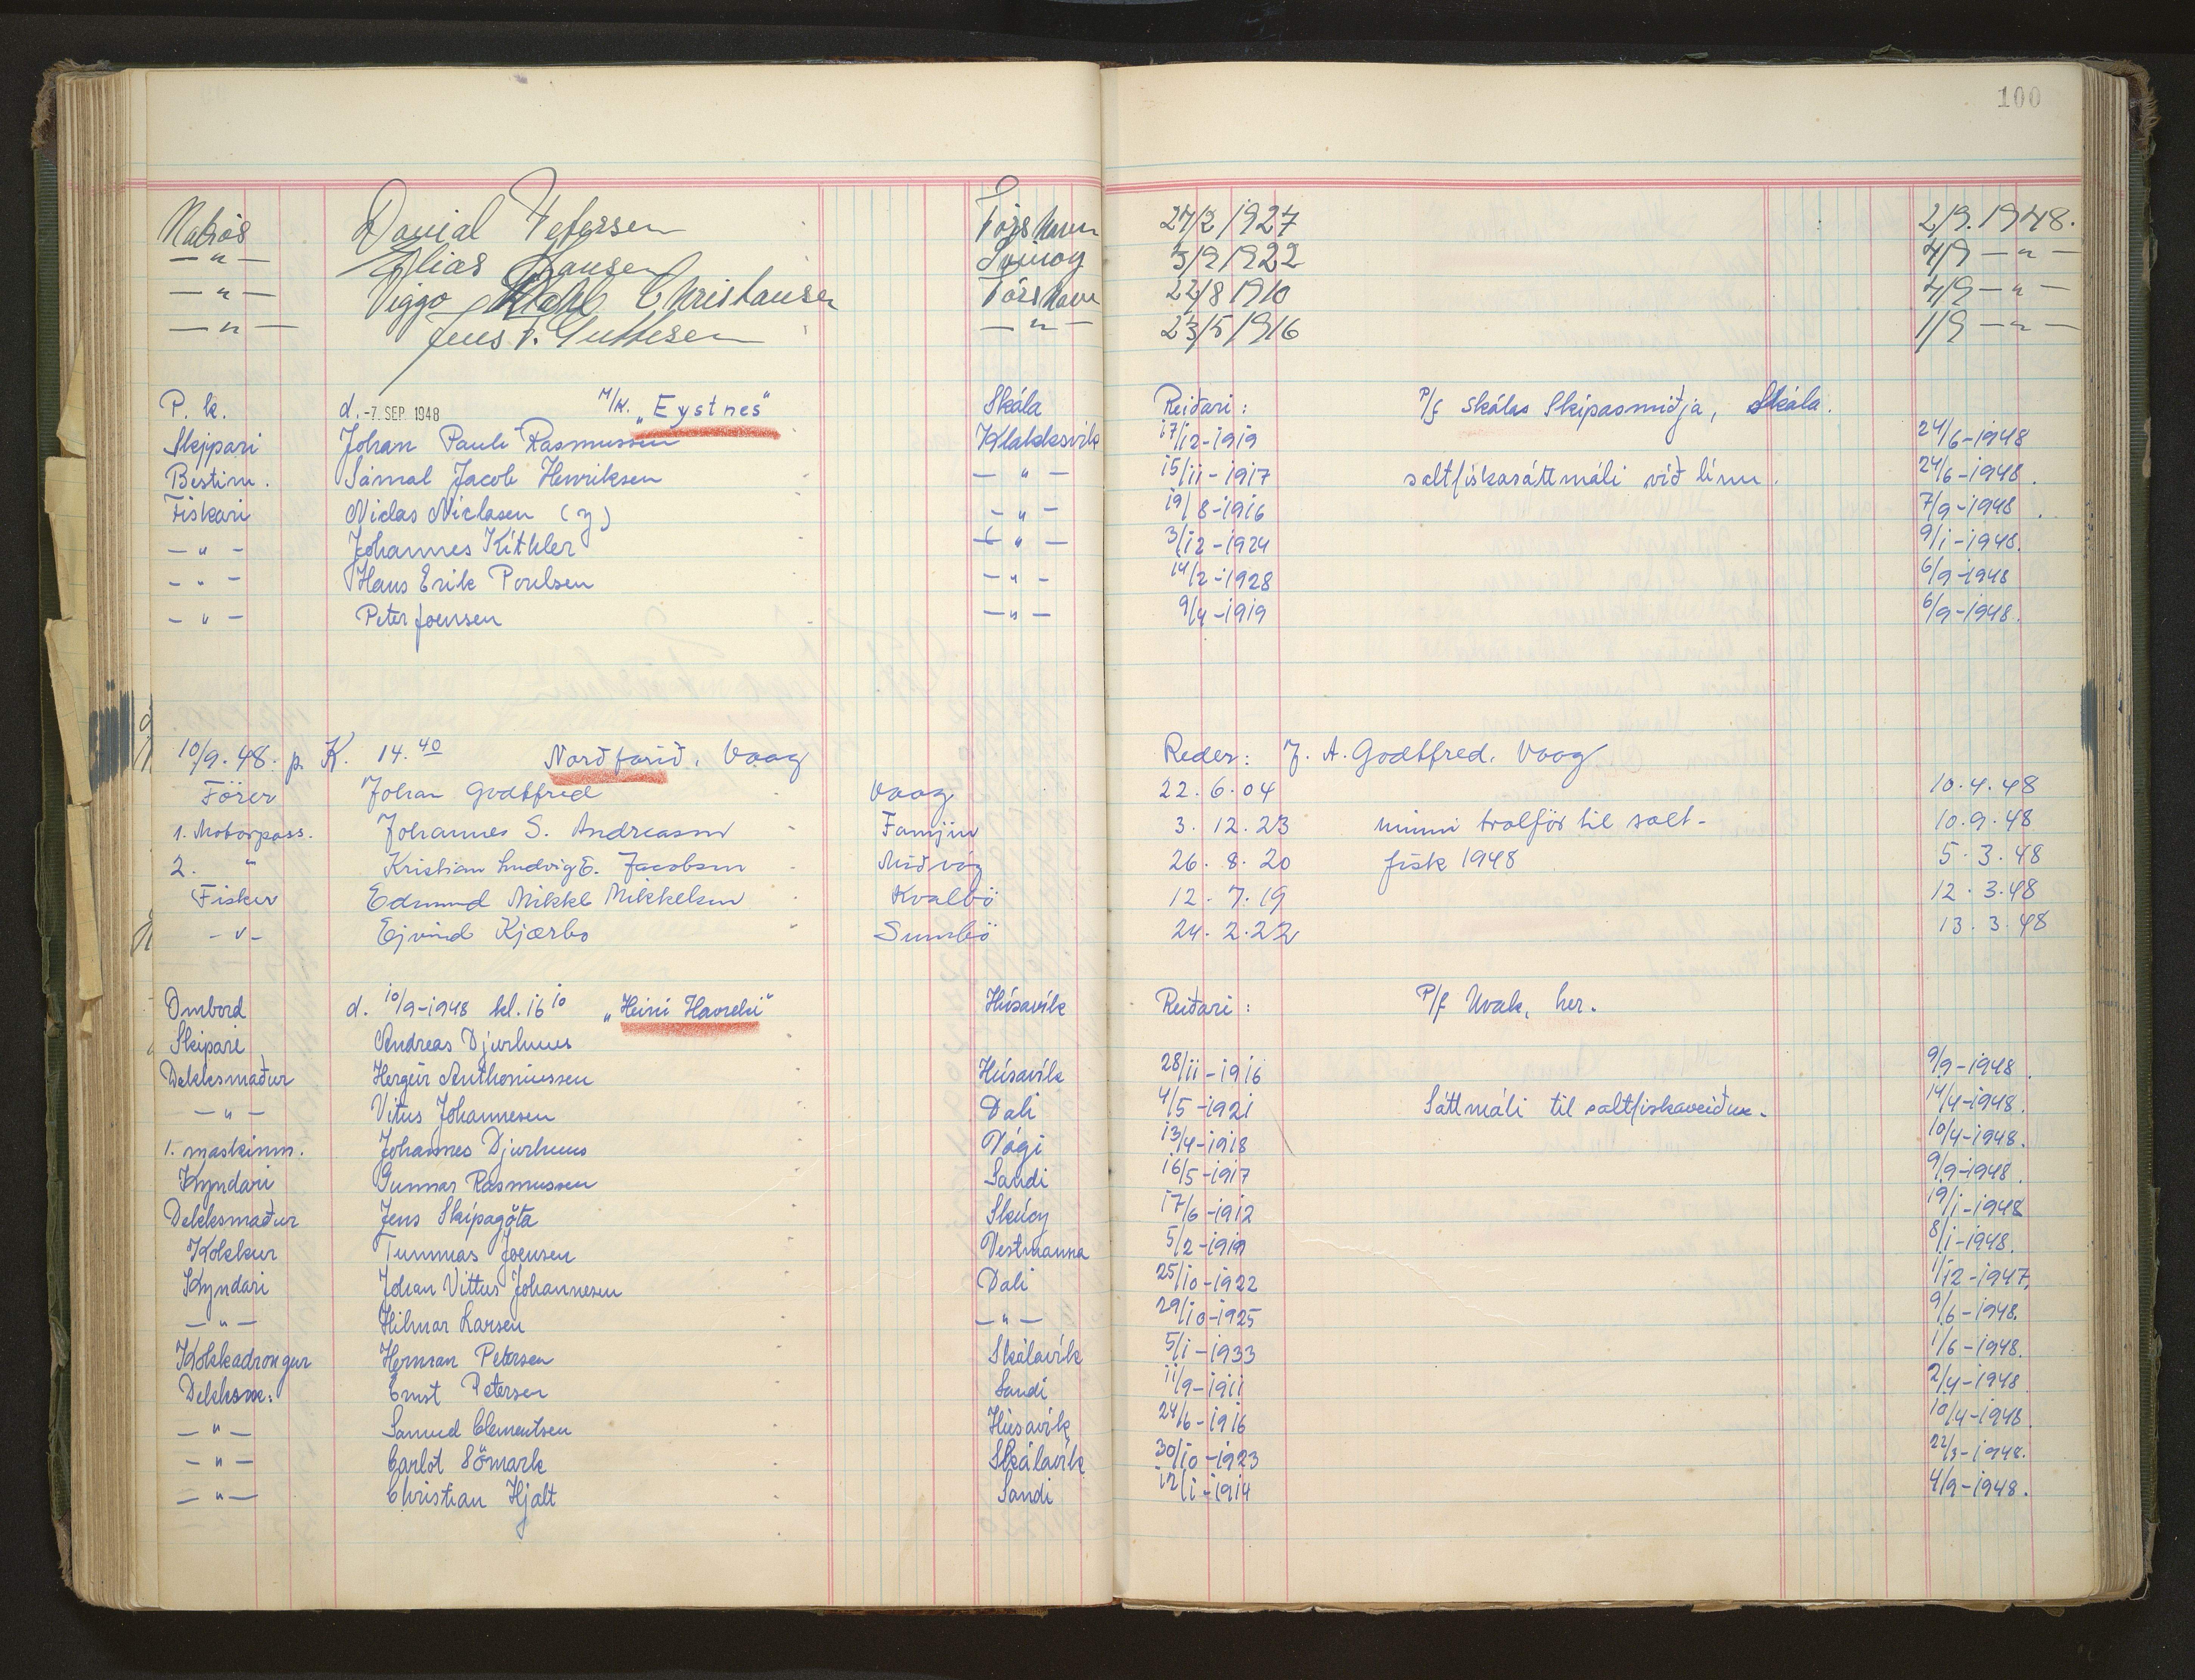 100
Matros Danial Petersen Tórshavn 27/2 1927 2/9.1948.
— " — Elias Hansen Svinoy 3/9 1922 4/9 — " —
— " — Viggo Christiansen Tórshavn 22/8 1910 4/9 — " —
— " — Jens P. Guttesen — " — 23/5 1916 1/9 — " —
P. k. d. -7. SEP. 1948 M/K. „Eystnes" Skála Reiðari: P/f Skálas Skipasmiðja, Skála.
Skippari Johan Pauli Rasmussen Klakksvik 17/12-1919 24/6-1948
Bestim. Sámal Jacob Henriksen — " — 15/11-1917 saltfiskasáttmáli við línu. 24/6-1948.
Fiskari Niclas Niclasen (y) — " — 19/8-1916 7/9-1948.
— " — Johannes Kithler — " — 3/12-1924 9/1-1948.
— " — Hans Erik Poulsen — " — 14/2-1928 6/9-1948
— " — Peter Joensen — " — 9/4-1919 6/9-1948.
10/9.48. p. K. 14.40 Norðfarið, Vaag Reder: J. A. Godtfred, Vaag
Förer Johan Godtfred Vaag 22.6.04 10.4.48
1. Motorpass. Johannes S. Andreasen Famjin 3.12.23 minni trolför til salt- 10.9.48
2. " Kristian Ludvig E. Jacobsen Miðvág 26.8.20 fisk 1948 5.3.48
Fisker Edmund Mikkel Mikkelsen Kvalbö 12.7.19 12.3.48
- " - Ejvind Kjærbo Sumbö 24.2.22 13.3.48
Ombord d. 10/9-1948 kl. 16 10 „Heini Havreki" Húsavík Reiðari: P/f Uvak, her.
Skipari Andreas Djurhuus
Dekksmaður Hergeir Anthoniussen Húsavík 28/11-1916 9/9-1948.
— " — Vitus Johannesen Dali 4/5-1921 Sáttmáli til saltfiskaveiður. 14/4-1948.
1. maskinm. Johannes Djurhuus Vági 13/4-1918 10/4-1948.
Kyndari Gunnar Rasmussen Sandi 16/5-1917 9/9-1948.
Dekksmaður Jens Skipagøta Skúoy 17/6-1912 19/1-1948
Kokkur Tummas Joensen Vestmanna 5/2-1919 8/1-1948.
Kyndari Johan Vittus Johannesen Dali 25/10-1922 1/12-1947,
— " — Hilmar Larsen — " — 29/10-1925 9/6-1948.
Kokkadrongur Herman Petersen Skálavík 5/1-1933 1/6-1948.
Dekksm: Ernst Petersen Sandi 11/9-1911 2/4-1948
— " — Samuel Clementsen Húsavík 24/6-1916 10/4-1948.
— " — Carlot Sömark Skálavík 30/10-1923 22/3-1948.
— " — Christian Hjalt Sandi 12/1-1914 4/9-1948.